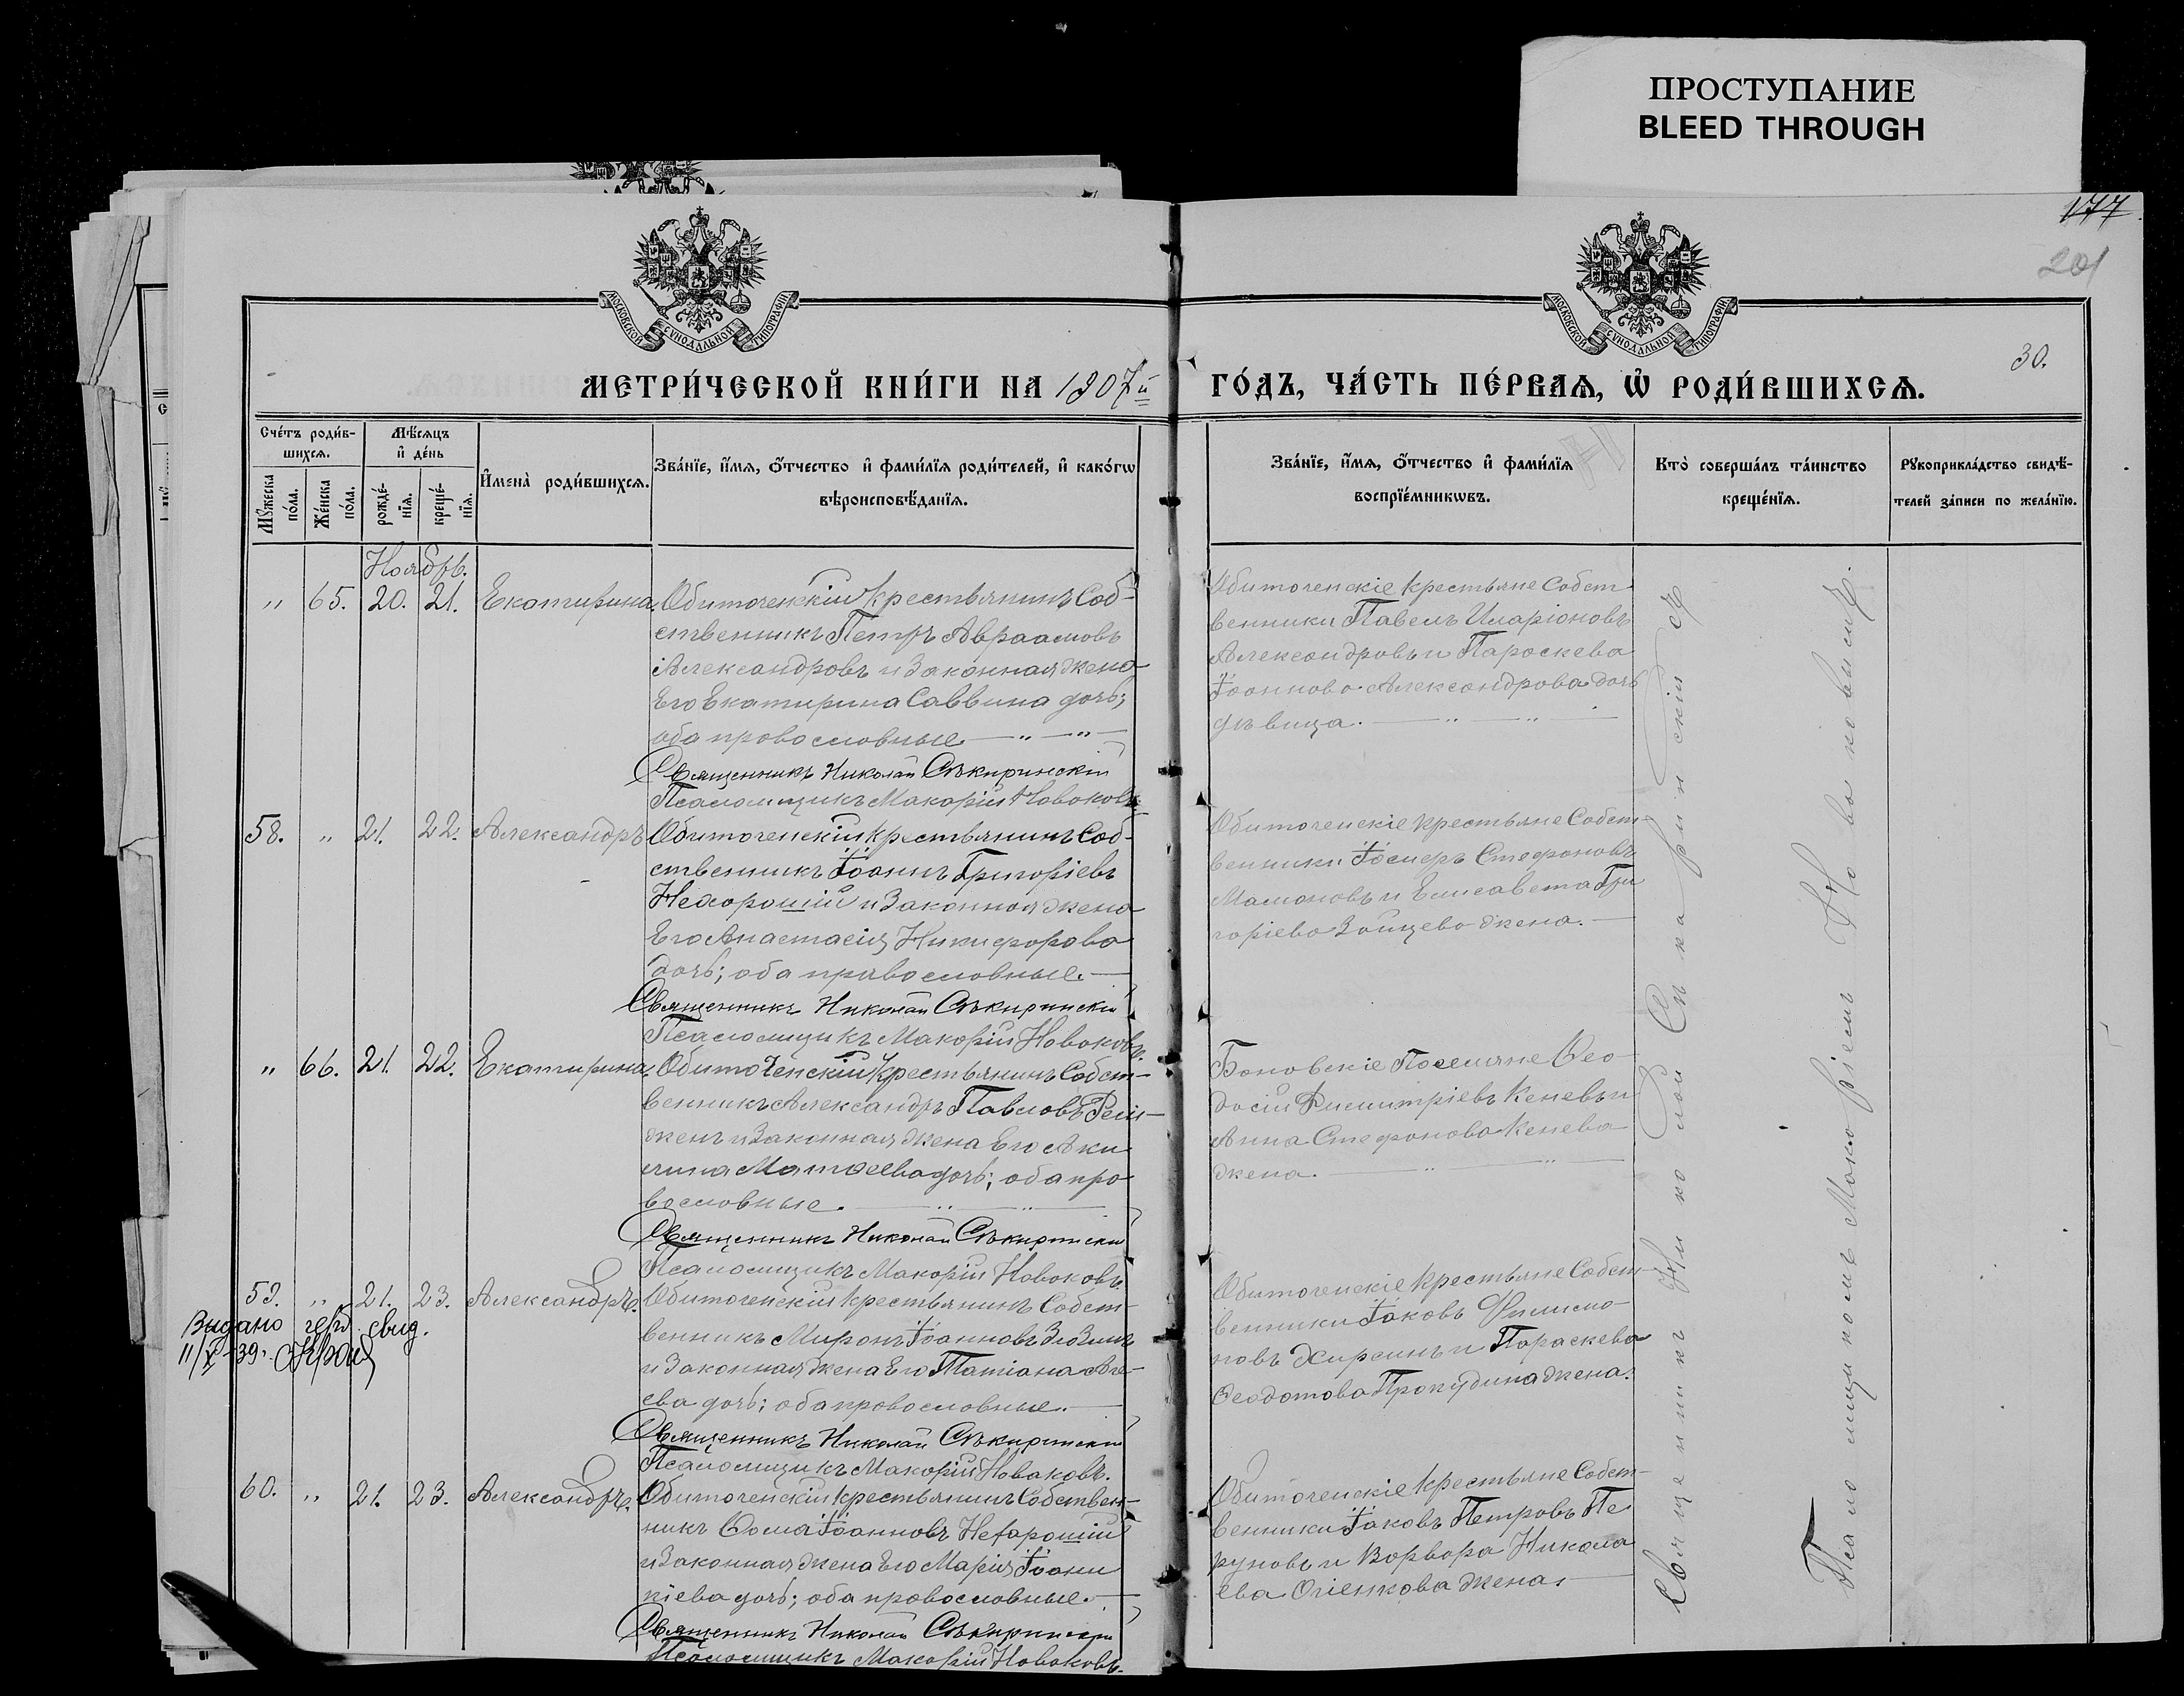 ПРОСТУПАНИЕ
BLEED THROUGH
177
201
МОСКОВСКОЙ СѴНОДАЛЬНОЙ ТИПОГРАФІИ
МОСКОВСКОЙ СѴНОДАЛЬНОЙ ТИПОГРАФІИ
30.
МЕТРИ́ЧЕСКОЙ КНИ́ГИ НА 1907й
ГО́ДЪ, ЧА́СТЬ ПЕ́РВАѦ, Ѡ҆ РОДИ́ВШИХСѦ.
Сче́тъ роди́в-
шихсѧ.
Мꙋ́жеска по́ла.
Же́нска по́ла.
Мѣ́сѧцъ
и҆ де́нь
рожде́-нїѧ.
креще́-нїѧ.
И҆мена̀ роди́вшихсѧ.
Зва́нїе, и҆́мѧ, ѻ҆́тчество и҆ фами́лїѧ роди́телей, и҆ како́гѡ
вѣроисповѣ́данїѧ.
Зва́нїе, и҆́мѧ, ѻ҆́тчество и҆ фами́лїѧ
воспрїе́мникѡвъ.
Кто̀ соверша́лъ та́инство
креще́нїѧ.
Рꙋкоприкла́дство свидѣ́-
телей за́писи по жела́нїю.
Ноябрь.
" 65. 20. 21. Екатирина. Обиточенскій крестьянинъ Соб-
ственникъ Петръ Авраамовъ
Александровъ и Законная жена
Его Екатирина Саввина дочь;
оба православные
Священникъ Николай Сѣкиринскій
Псаломщикъ Макарій Новаковъ
Обиточенскіе крестьяне Собст-
венники Павелъ Иларіоновъ
Александровъ и Параскева
Іоаннова Александрова дочь
дѣвица.
58. " 21. 22. Александръ Обиточенскій крестьянинъ Соб-
ственникъ Іоаннъ Григоріевъ
Нехорошій и Законная жена
Его Анастасія Никифорова
дочь; оба православные.
Священникъ Николай Сѣкиринскій
Псаломщикъ Макарій Новаковъ.
Обиточенскіе крестьяне Собст-
венники Іосифъ Стефановъ
Мамоновъ и Елисавета Гри
горіева Зайцева жена.
" 66. 21. 22. Екатирина Обиточенскій крестьянинъ Собст-
венникъ Александръ Павловъ
женъ и Законная жена Его Аки
лина Матѳеева дочь; оба пра
вославные.
Священникъ Николай Сѣкиринскій
Псаломщикъ Макарій Новаковъ.
Бановскіе Поселяне Ѳео-
досій Димитріевъ Кеневъ и
Анна Стефанова Кенева
жена.
59. " 21. 23. Александръ. Обиточенскій крестьянинъ Собст-
венникъ Миронъ Іоанновъ
и Законная жена Его Татіана Аге-
ева дочь; оба православные.
Священникъ Николай Сѣкиринскій
Псаломщикъ Макарій Новаковъ.
Выдано герб. свид.
11/X-39г.
Обиточенскіе крестьяне Собст-
венники Іаковъ Филимо-
новъ Жирсинъ и Параскева
Ѳеодотова Прокудина жена.
60. " 21. 23. Александръ. Обиточенскій крестьянинъ Собствен-
никъ Ѳома Іоанновъ Нехарошій
и Законная жена Его Марія Іоанни
кіева дочь; оба православные.
Священникъ Николай Сѣкиринскій
Псаломщикъ Макарій Новаковъ.
Обиточенскіе крестьяне Собст-
венники Іаковъ Петровъ Пе
руновъ и Варвара Никола
ева Огіенкова жена.
Священникъ Николай Сѣкиринскій съ
Псаломщикомъ Макаріемъ Новаковымъ.